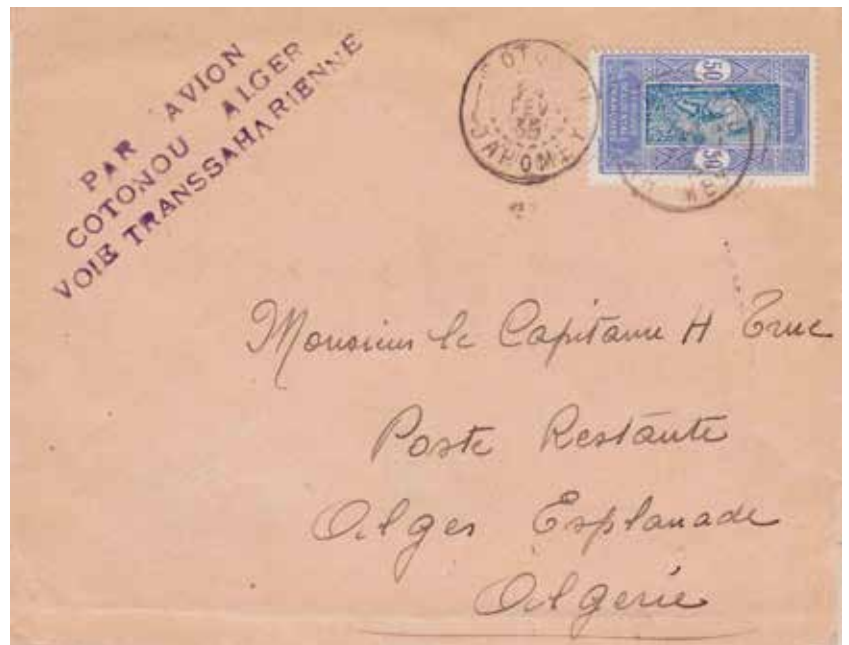 PAR AVION
COTONOU ALGER
VOIE TRANSSAHARIENNE
FEV
35
DAHOMEY
50
50
Monsieur le Capitaine H Truc
Poste Restante
Alger Esplanade
Algerie